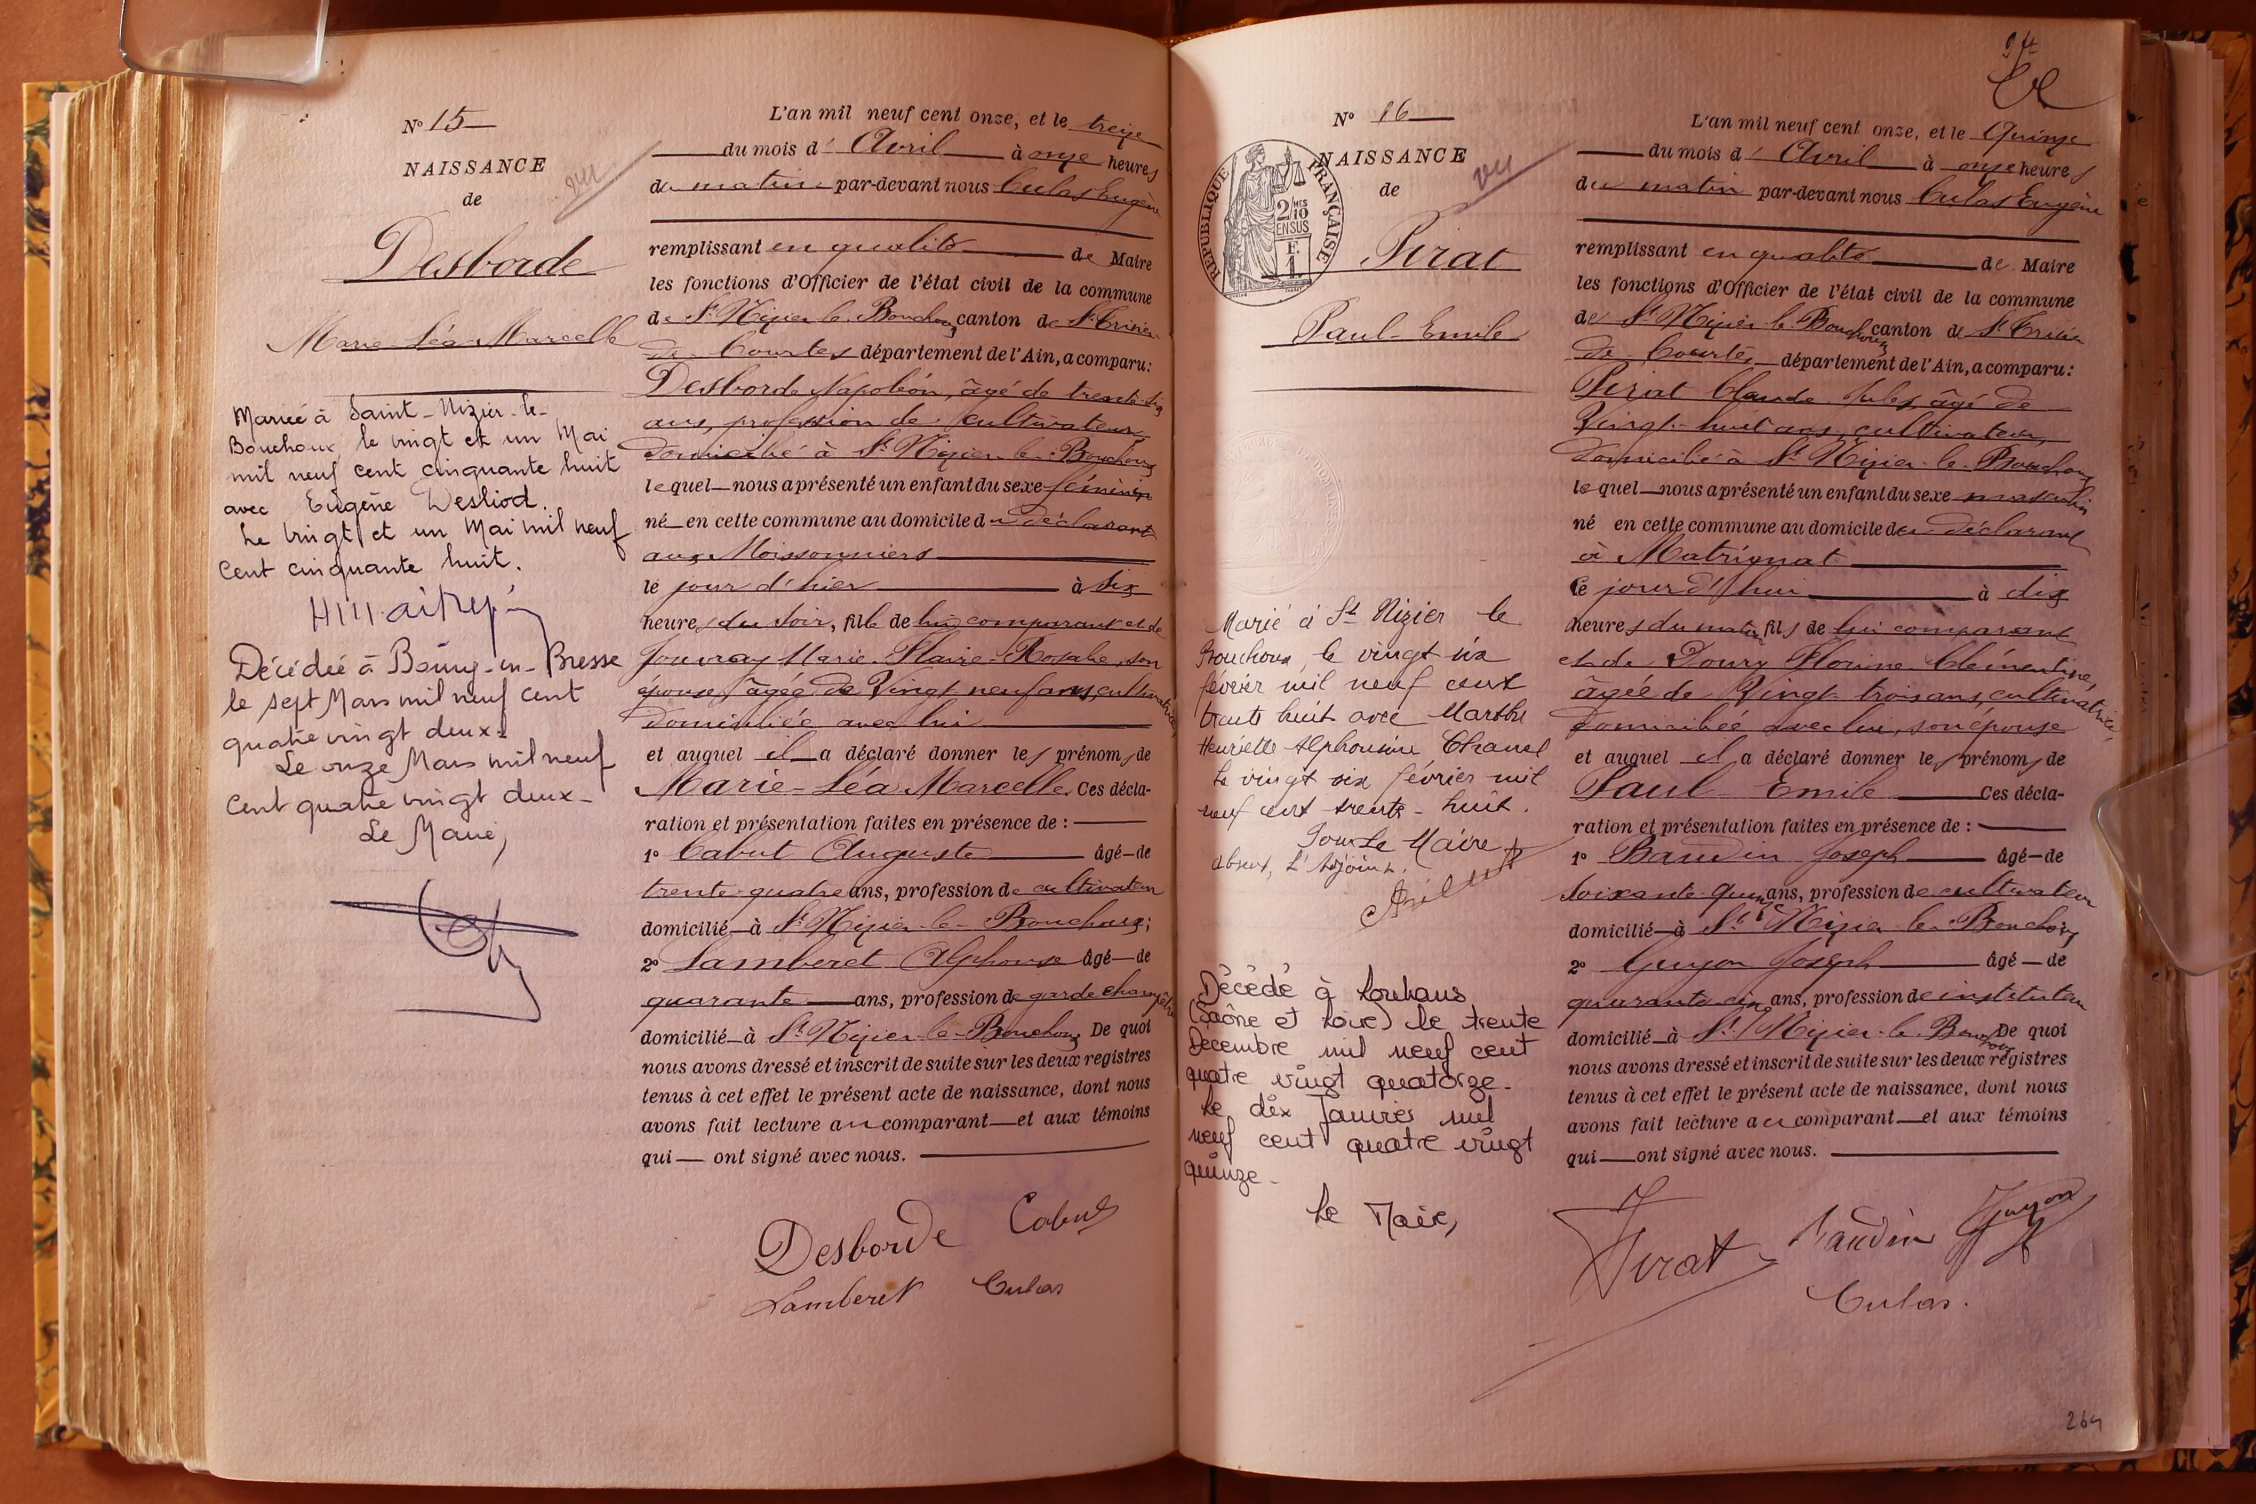 N° 15
NAISSANCE
de
Desborde
Marie Léa Marcelle
vu
Mariée à Saint-Nizier-le-
Bouchoux le vingt et un Mai
mil neuf cent cinquante huit
avec Eugène Desliod.
Le vingt et un Mai mil neuf
Cent cinquante huit.
Décédée à Bourg-en-Bresse
le sept Mars mil neuf cent
quatre vingt deux.
Le onze Mars mil neuf
Cent quatre vingt deux-
Le Maire,
L'an mil neuf cent onze, et le treize
du mois d' Avril à onze heures
du matin par-devant nous Culas Eugène
remplissant en qualité de Maire
les fonctions d'Officier de l'état civil de la commune
de St Nizier le Bouchoux canton de St Trivier
de Courtes département de l'Ain, a comparu:
Desborde Napoléon, âgé de trente-six
ans, profession de cultivateur,
domicilié à St Nizier le Bouchoux
lequel nous a présenté un enfant du sexe féminin
né en cette commune au domicile du déclarant
aux Moissonniers
le jour d'hier à six
heures du soir, fille de lui comparant et de
Jouvray Marie Rosalie, son
épouse, âgée de Vingt neuf ans, cultivatrice,
domiciliée avec lui
et auquel il a déclaré donner les prénoms de
Marie-Léa Marcelle. Ces décla-
ration et présentation faites en présence de :
1° Cabut Auguste âgé de
trente quatre ans, profession de cultivateur
domicilié à St Nizier le Bouchoux;
2° Lamberet Alphonse âgé de
quarante ans, profession de garde champêtre
domicilié à St Nizier-le-Bouchoux De quoi
nous avons dressé et inscrit de suite sur les deux registres
tenus à cet effet le présent acte de naissance, dont nous
avons fait lecture au comparant et aux témoins
qui ont signé avec nous.
Desborde Cabut
Lamberet Culas
N° 16
NAISSANCE
de
vu
REPUBLIQUE FRANÇAISE
2/10 MES
EN SUS
F.
1.
Pirat
Paul-Emile
Marié à St Nizier le
Bouchoux, le vingt six
février mil neuf cent
trente huit avec Marthe
Henriette Alphonsine Chanel
Le vingt six février mil
neuf cent trente-huit.
Pour Le Maire
absent, L'Adjoint.
Décédé à Louhans
(Saône et Loire) le trente
Décembre mil neuf cent
quatre vingt quatorze.
Le dix Janvier mil
neuf cent quatre vingt
quinze.
Le Maire,
L'an mil neuf cent onze, et le Quinze
du mois d' Avril à onze heures
du matin par-devant nous Culas Eugène
remplissant en qualité de Maire
les fonctions d'Officier de l'état civil de la commune
de St Nizier le Bouchoux canton de St Trivier
de Courtes, département de l'Ain, a comparu:
Pirat Claude Jules, âgé de
Vingt-huit ans, cultivateur,
domicilié à St Nizier le Bouchoux
lequel nous a présenté un enfant du sexe masculin
né en cette commune au domicile du déclarant
à Matrignat
ce jour d'hui à dix
heures du matin fils de lui comparant
et de Doury Florine Clémentine,
âgée de Vingt-trois ans, cultivatrice
domiciliée avec lui, son épouse
et auquel il a déclaré donner les prénoms de
Paul Emile Ces décla-
ration et présentation faites en présence de :
1° Baudin Joseph âgé de
soixante quinze ans, profession de cultivateur
domicilié à St Nizier le Bouchoux
2° Guyon Joseph âgé de
quarante cinq ans, profession de instituteur
domicilié à St Nizier le Bouchoux De quoi
nous avons dressé et inscrit de suite sur les deux registres
tenus à cet effet le présent acte de naissance, dont nous
avons fait lecture au comparant et aux témoins
qui ont signé avec nous.
Pirat Baudin Guyon
Culas.
264